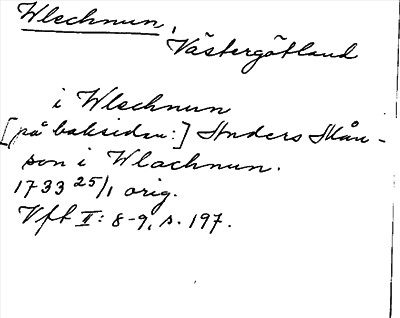 Wlechnun,
Västergötland
i Wlschnun
[på baksidan:] Anders Mån-
son i Wlachnun.
1733 25/1 orig.
Vft II: 8-9, s. 197.